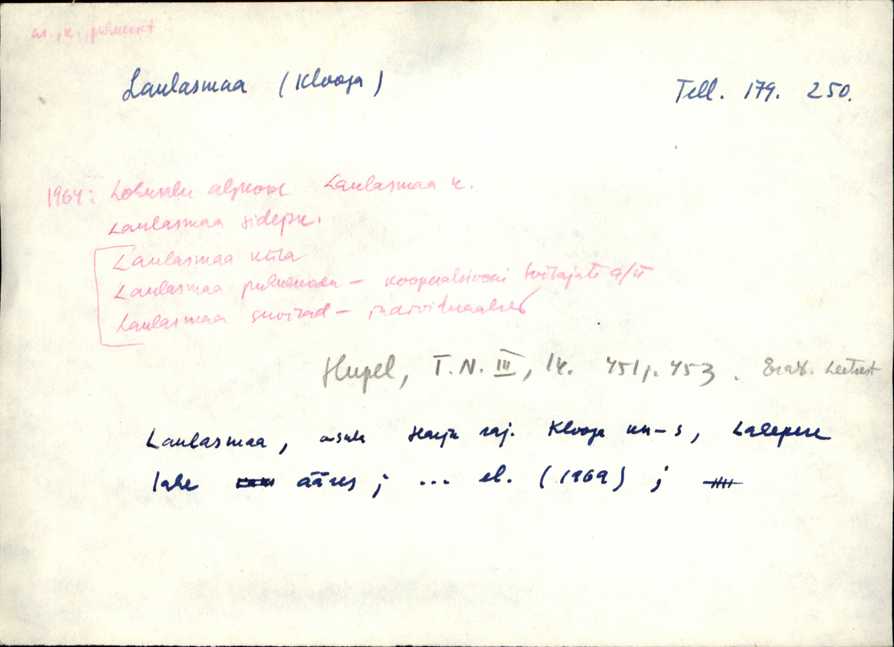 as., k., puhkekoht
Laulasmaa (Klooga) Tell. 179. 250.
1964: Lohusalu aljaost Laulasmaa k.
Laulasmaa sidejsk.
Laulasmaa küla
Laulasmaa puhkemaja – kooperatsiooni töötajate a/ü
Laulasmaa suvilad – individuaalsed
Hupel, T.N. III, lk. 451, 453. Leetsest
Laulasmaa, asula Harju raj. Klooga kn-s, Lahepere
lahe ääres; ... el. (1969);